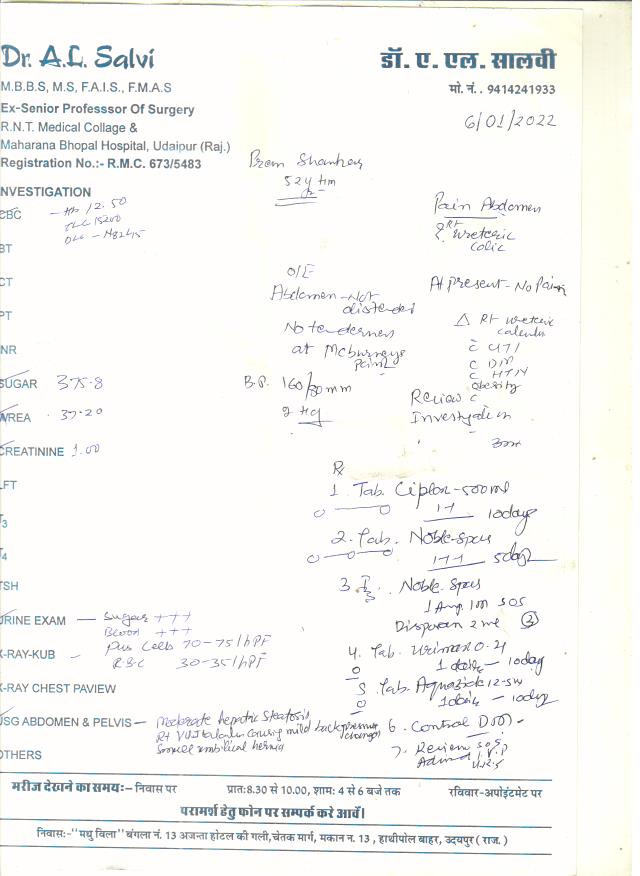 Dr. A.L. Salvi
डॉ. ए. एल. सालवी
M.B.B.S, M.S, F.A.I.S., F.M.A.S
मो. नं. . 9414241933
Ex-Senior Professsor Of Surgery
6/01/2022
R.N.T. Medical Collage &
Maharana Bhopal Hospital, Udaipur (Raj.)
Registration No.:- R.M.C. 673/5483
Prem Shankar
52y Hm
NVESTIGATION
CBC - Hb 12.50
TLC 15200
DLC - N82
BT
Pain Abdomen
? Rt ureteric
colic
CT
O/E
Abdomen - Not
distended
At present - No Pain
PT
No tenderness
at Mcburneys
point
△ Rt ureteric
calculus
c̄ UTI
c̄ DM
c̄ HTN
obesity
NR
SUGAR 375.8
B.P. 160/80 mm
Hg
Review c̄
Investigation
UREA 37.20
CREATININE 1.00
Rx
LFT
1. Tab. Ciplox - 500
1-1 10days
T3
2. Tab. Noble-spas
1-1-1 5days
T4
TSH
3. Noble-spas
1 Amp. IM SOS
URINE EXAM - Sugar +++
Blood +++
Pus Cells 70-75/hPF
RBC 30-35/hPF
X-RAY-KUB
4. Tab. Urimax 0.4
1 daily - 10day
X-RAY CHEST PAVIEW
5 Tab. 12.5
1 daily - 10days
USG ABDOMEN & PELVIS - Moderate hepatic steatosis
Rt VUJ calculus causing mild backpressure
changes
Small umbilical hernia
6. Control DM -
7. Review SOS
OTHERS
मरीज देखने का समयः– निवास पर
प्रात:8.30 से 10.00, शाम: 4 से 6 बजे तक
रविवार-अपोइंटमेंट पर
परामर्श हेतु फोन पर सम्पर्क करे आवें।
निवास:-"मधु विला" बंगला नं. 13 अजन्ता होटल की गली,चेतक मार्ग, मकान न. 13 , हाथीपोल बाहर, उदयपुर ( राज. )